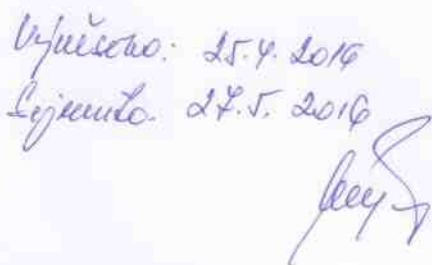 Vyvěšeno: 25.4. 2016
Sejmuto: 27.5. 2016